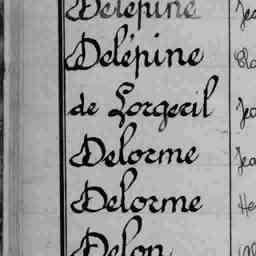 Delépine Jea
Delépine
de Lorgeril Jea
Delorme Jea
Delorme He
Delon